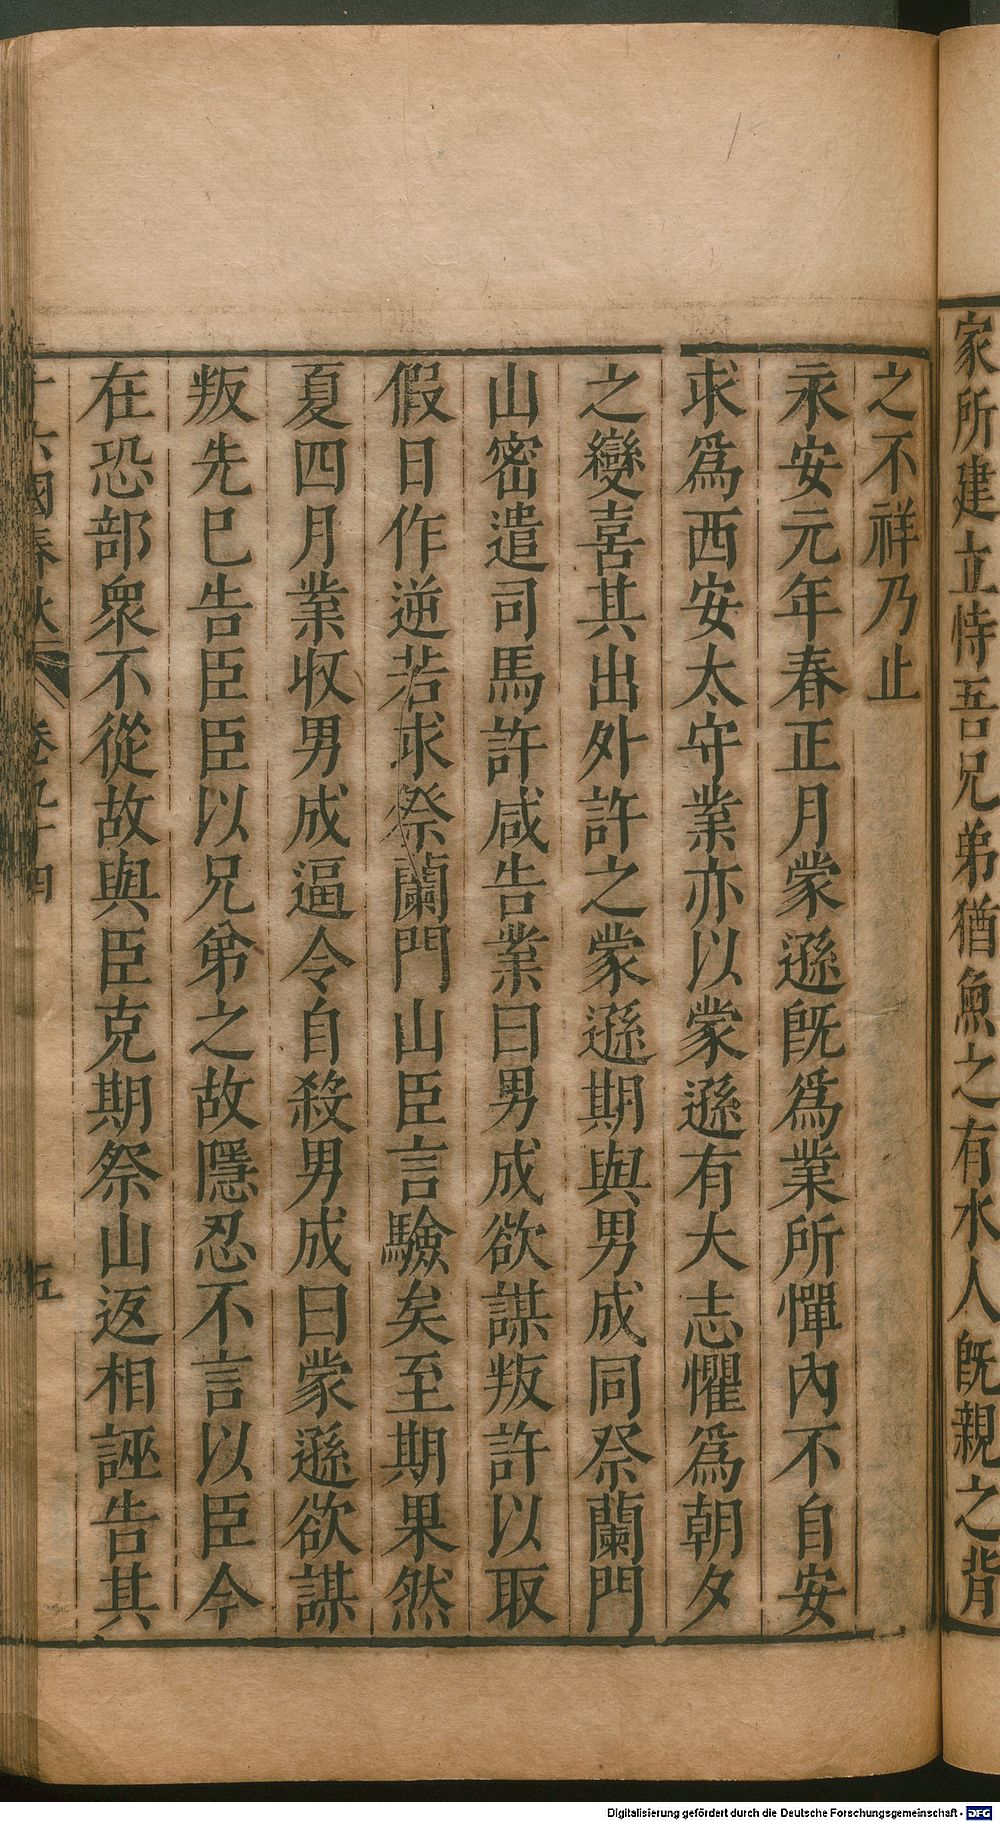 家所建立恃吾兄弟猶魚之有水人旣親之背
之不祥乃止
永安元年春正月蒙遜旣爲業所憚內不自安
求爲西安太守業亦以蒙遜有大志懼爲朝夕
之變喜其出外許之蒙遜期與男成同祭蘭門
山密遣司馬許咸告業曰男成欲謀叛許以取
假日作逆若求祭蘭門山臣言驗矣至期果然
夏四月業收男成逼令自殺男成曰蒙遜欲謀
叛先巳告臣臣以兄弟之故隱忍不言以臣今
在恐部衆不從故與臣克期祭山返相誣告其
十六國春秋 卷九十四 五
Digitalisierung gefördert durch die Deutsche Forschungsgemeinschaft - DFG